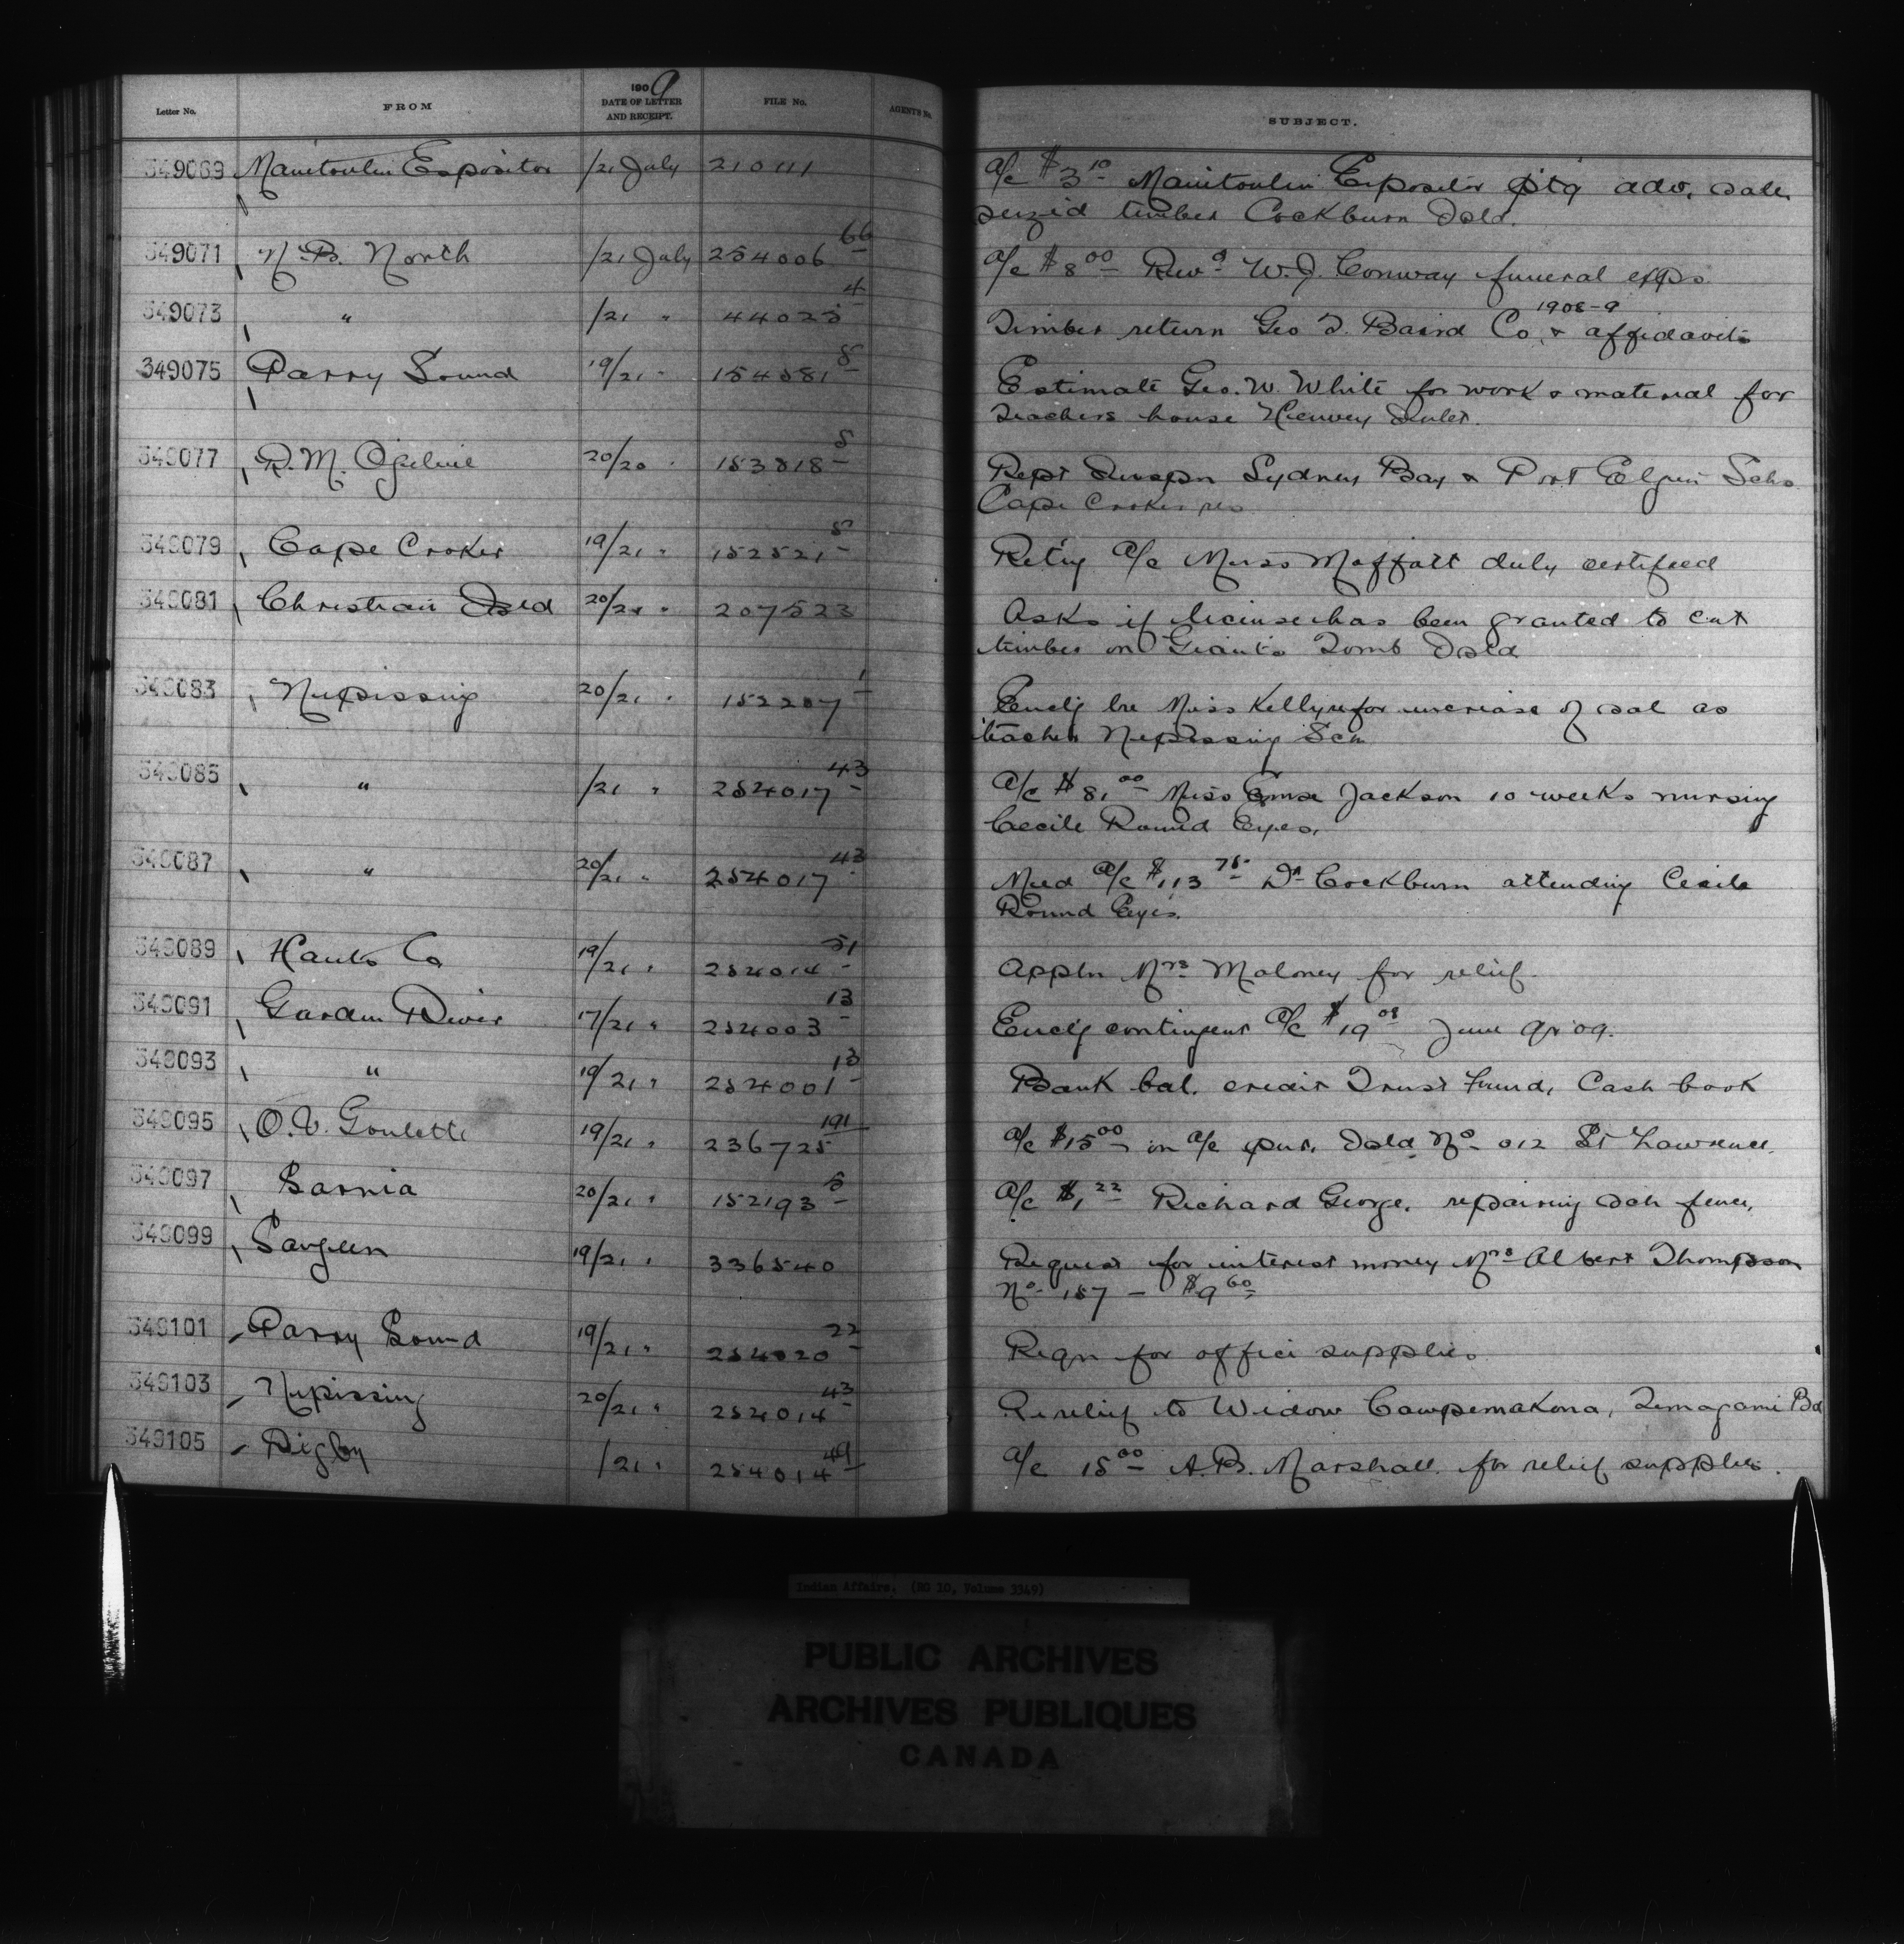 Letter No. FROM 1909 DATE OF LETTER AND RECEIPT. FILE No. AGENTS No. SUBJECT.
349069 Manitoulin Expositor /21 July 210111 a/c $3 10 Manitoulin Expositor ptg adv. sale
seized timber Cockburn Isld.
349071 N.B. North /21 July 254006 66 a/c $8 00 Revd W.J. Conway funeral exps.
349073 " /21 " 44023 4 Timber return Geo T. Baird Co, & affidavits 1908-9
349075 Parry Sound 19/21 " 154581 8 Estimate Geo. W. White for work & material for
teachers house Henvey Inlet.
349077 R.M. Ogilvie 20/20 " 153818 8 Rept Inspn Sydney Bay & Port Elgin Schs
Cape Croker res
349079 Cape Croker 19/21 " 152521 8 Retg a/c Miss Moffatt duly certified
349081 Christian Isld 20/21 " 207523 Asks if license has been granted to cut
timber on Giants Tomb Isld
349083 Nipissing 20/21 " 152207 1 Enclg lre Miss Kelly re for increase of sal as
teacher Nipissing Sch
349085 " /21 " 254017 43 a/c $81 00 Miss Jackson 10 weeks nursing
Cecile Round Eyes.
349087 " 20/21 " 254017 43 Med a/c $113 75 Dr Cockburn attending Cecile
Round Eyes.
349089 Hants Co 19/21 " 254014 51 Appln Mrs Maloney for relief
349091 Garden River 17/21 " 254003 13 Enclg contingent a/c $19 08 June qr 09.
349093 " 19/21 " 254001 13 Bank bal. credit Trust Fund, Cash book
349095 O.V. Goulette 19/21 " 236725 191 a/c $15 00 in a/c pur. Isld No 012 St Lawrence.
349097 Sarnia 20/21 " 152193 8 a/c $1 22 Richard George. repairing sch fence.
349099 Saugeen 19/21 " 336540 Request for interest money Mrs Albert Thompson
No 187 - $9 60
349101 Parry Sound 19/21 " 254020 22 Reqn for office supplies
349103 Nipissing 20/21 " 254014 43 Re relief to Widow Cawpemakona, Temagami Bd
349105 Digby /21 " 254014 49 a/c 15 00 A.B. Marshall for relief supplies.
Indian Affairs. (RG 10, Volume 3349)
PUBLIC ARCHIVES
ARCHIVES PUBLIQUES
CANADA